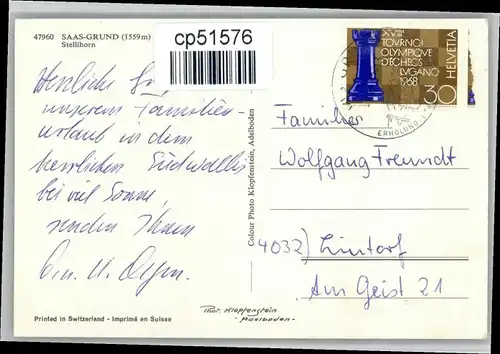 47960 SAAS-GRUND (1559 m)
Stellihorn
cp51576
XVIII
TOURNOI
OLYMPIQUE
D'ÉCHECS
LUGANO
1968
HELVETIA
30
ERHOLUNG
Herzliche
unserem Familien-
urlaub in dem
herrlichen Südwallis
bei viel Sonne,
senden Ihnen
Colour Photo Klopfenstein, Adelboden
Familie
Wolfgang Freundt
4032) Lintorf
Am Geist 21
Printed in Switzerland - Imprimé en Suisse
Phot. Klopfenstein
- Adelboden -